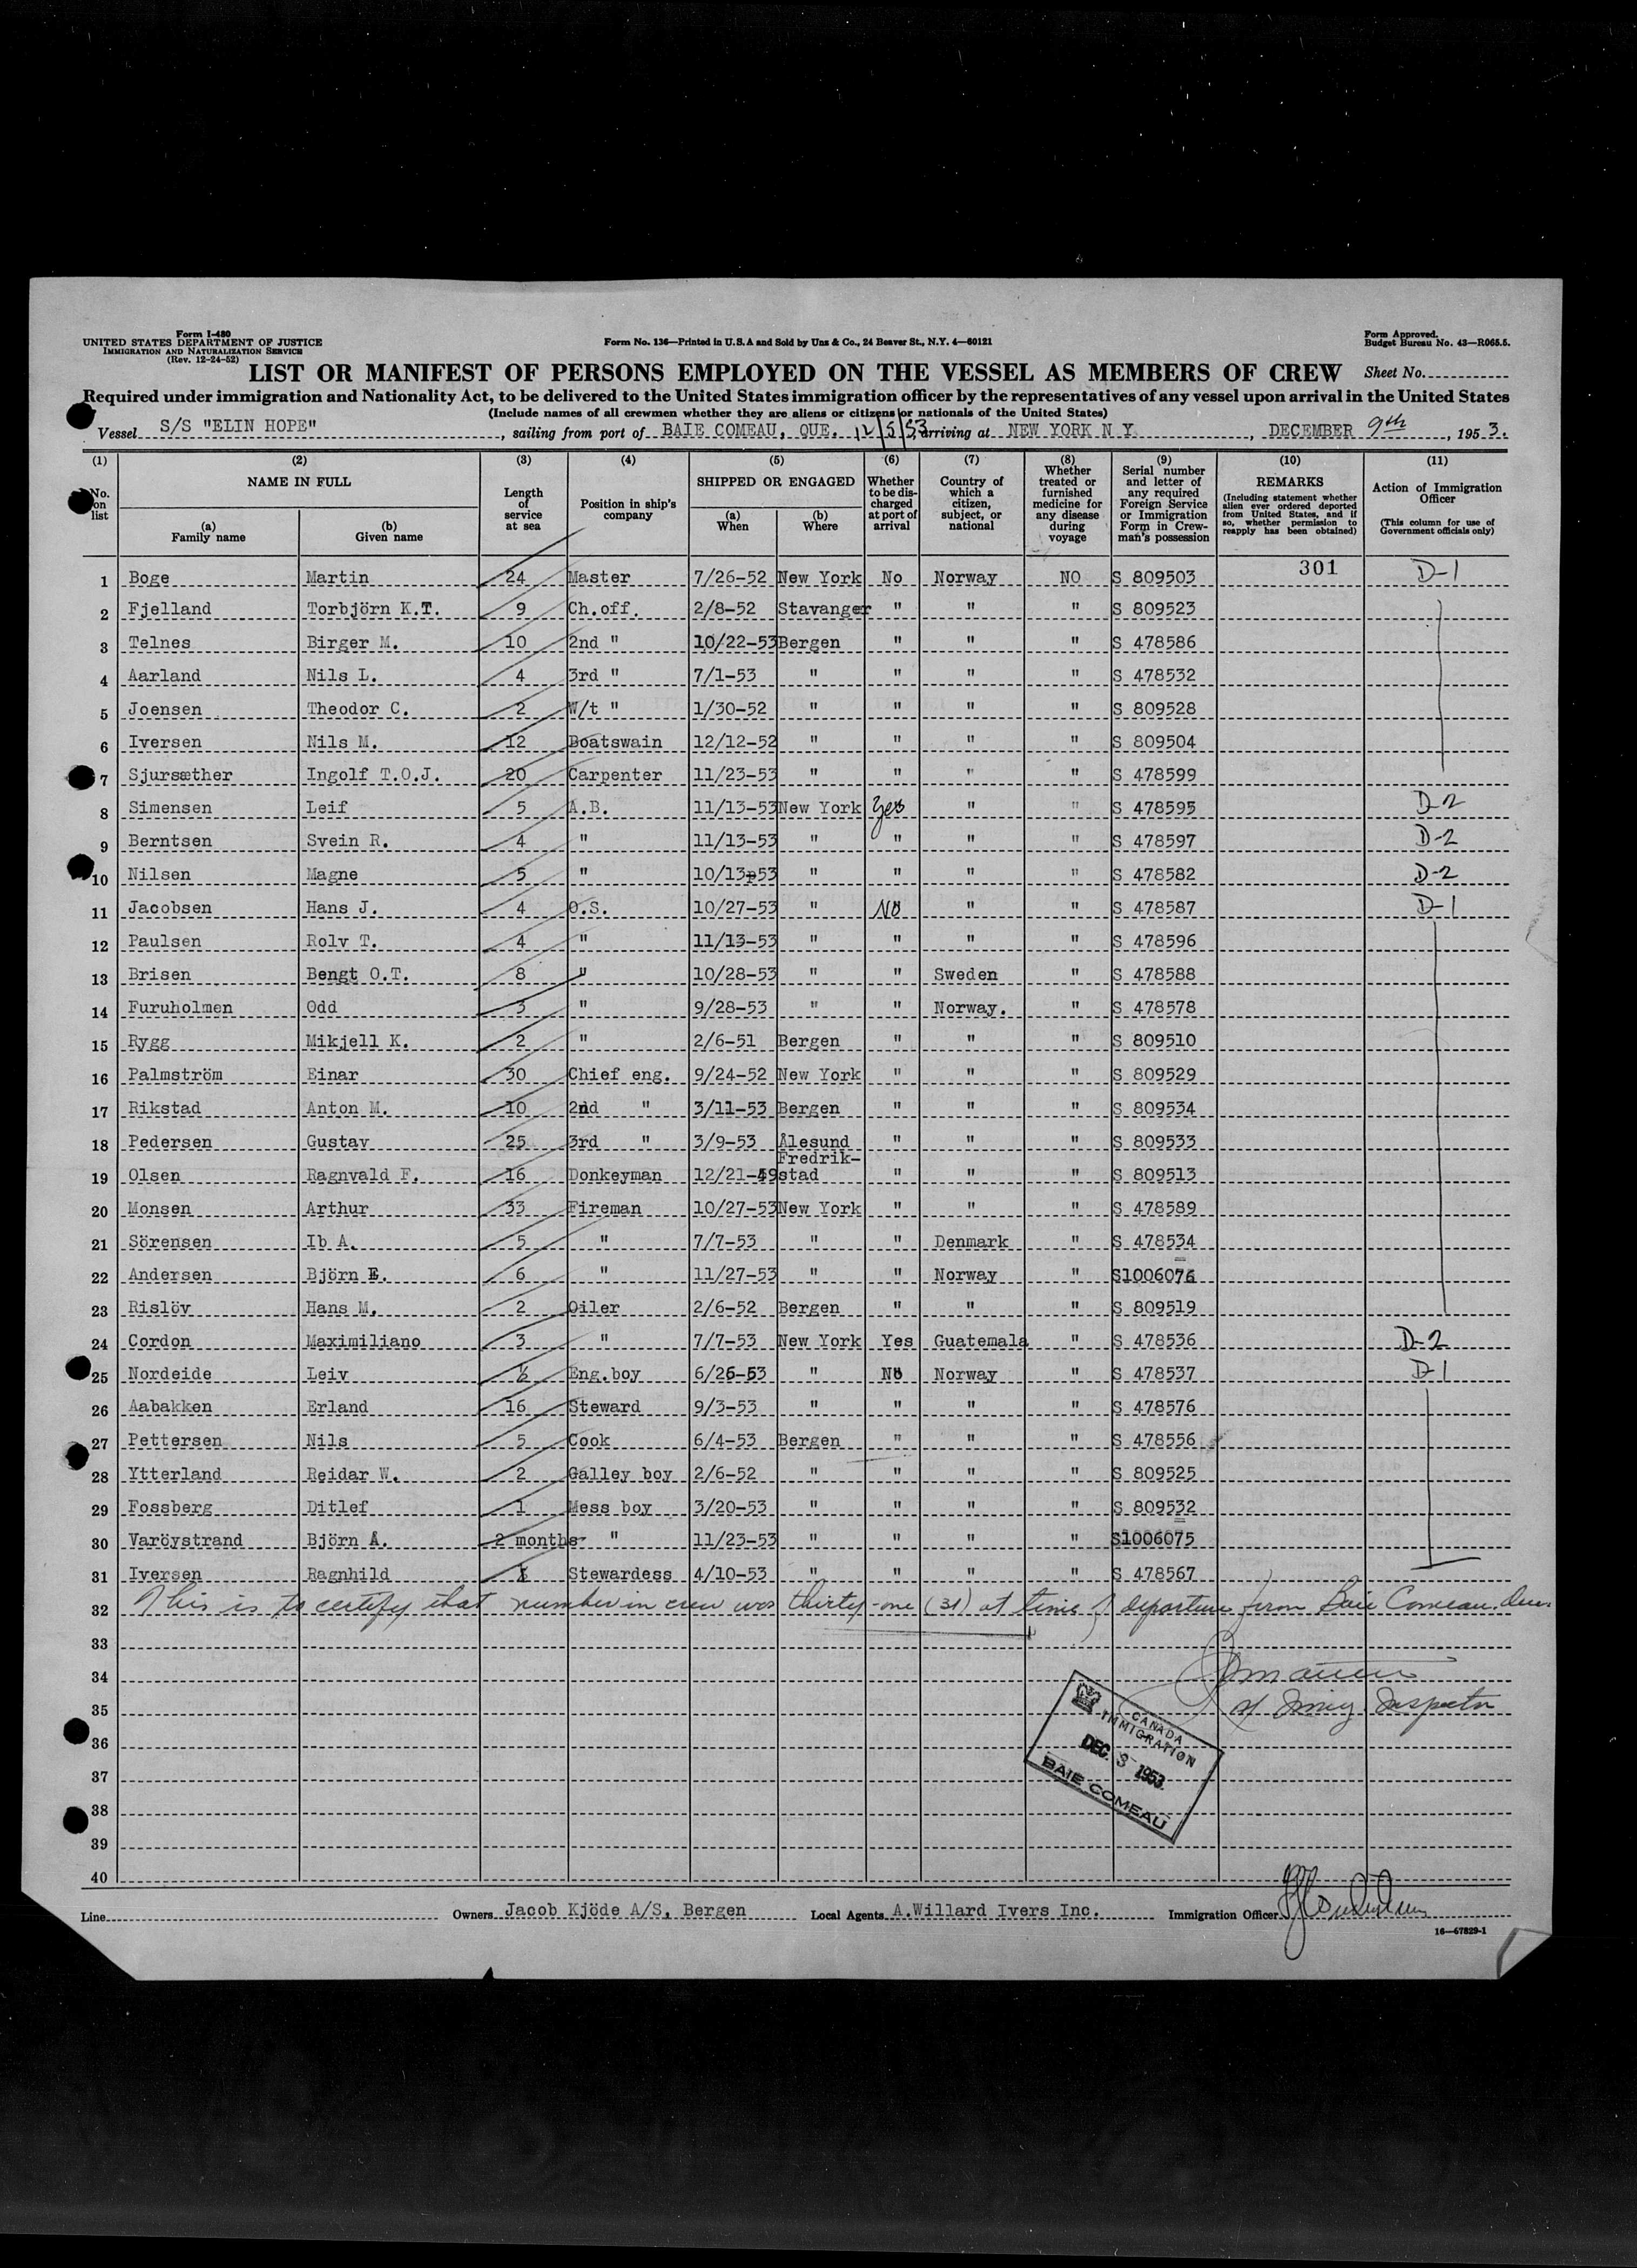 Form I-480
UNITED STATES DEPARTMENT OF JUSTICE
IMMIGRATION AND NATURALIZATION SERVICE
(Rev. 12-24-52)
Form No. 136—Printed in U.S.A and Sold by Unz & Co., 24 Beaver St., N.Y. 4—60121
Form Approved.
Budget Bureau No. 43—R065.5.
LIST OR MANIFEST OF PERSONS EMPLOYED ON THE VESSEL AS MEMBERS OF CREW Sheet No.
Required under immigration and Nationality Act, to be delivered to the United States immigration officer by the representatives of any vessel upon arrival in the United States
(Include names of all crewmen whether they are aliens or citizens or nationals of the United States)
Vessel S/S "ELIN HOPE", sailing from port of BAIE COMEAU, QUE. 12/5/53, arriving at NEW YORK N Y, DECEMBER 9th, 1953.
(1) (2) (3) (4) (5) (6) (7) (8) (9) (10) (11)
No. on list
NAME IN FULL
(a) Family name
(b) Given name
Length of service at sea
Position in ship's company
SHIPPED OR ENGAGED
(a) When
(b) Where
Whether to be discharged at port of arrival
Country of which a citizen, subject, or national
Whether treated or furnished medicine for any disease during voyage
Serial number and letter of any required Foreign Service or Immigration Form in Crewman's possession
REMARKS
(Including statement whether alien ever ordered deported from United States, and if so, whether permission to reapply has been obtained)
Action of Immigration Officer
(This column for use of Government officials only)
1 Boge Martin 24 Master 7/26-52 New York No Norway NO S 809503 301 D-1
2 Fjelland Torbjörn K.T. 9 Ch.off. 2/8-52 Stavanger " " " S 809523
3 Telnes Birger M. 10 2nd " 10/22-53 Bergen " " " S 478586
4 Aarland Nils L. 4 3rd " 7/1-53 " " " " S 478532
5 Joensen Theodor C. 2 W/t " 1/30-52 " " " " S 809528
6 Iversen Nils M. 12 Boatswain 12/12-52 " " " " S 809504
7 Sjursæther Ingolf T.O.J. 20 Carpenter 11/23-53 " " " " S 478599
8 Simensen Leif 5 A.B. 11/13-53 New York Yes " " S 478595 D-2
9 Berntsen Svein R. 4 " 11/13-53 " " " " S 478597 D-2
10 Nilsen Magne 5 " 10/13-53 " " " " S 478582 D-2
11 Jacobsen Hans J. 4 O.S. 10/27-53 " No " " S 478587 D-1
12 Paulsen Rolv T. 4 " 11/13-53 " " " " S 478596
13 Brisen Bengt O.T. 8 " 10/28-53 " " Sweden " S 478588
14 Furuholmen Odd 3 " 9/28-53 " " Norway. " S 478578
15 Rygg Mikjell K. 2 " 2/6-51 Bergen " " " S 809510
16 Palmström Einar 30 Chief eng. 9/24-52 New York " " " S 809529
17 Rikstad Anton M. 10 2nd " 3/11-53 Bergen " " " S 809534
18 Pedersen Gustav 25 3rd " 3/9-53 Ålesund " " " S 809533
19 Olsen Ragnvald F. 16 Donkeyman 12/21-49 Fredrik-stad " " " S 809513
20 Monsen Arthur 33 Fireman 10/27-53 New York " " " S 478589
21 Sörensen Ib A. 5 " 7/7-53 " " Denmark " S 478534
22 Andersen Björn E. 6 " 11/27-53 " " Norway " S1006076
23 Rislöv Hans M. 2 Oiler 2/6-52 Bergen " " " S 809519
24 Cordon Maximiliano 3 " 7/7-53 New York Yes Guatemala " S 478536 D-2
25 Nordeide Leiv ½ Eng.boy 6/26-53 " No Norway " S 478537 D-1
26 Aabakken Erland 16 Steward 9/3-53 " " " " S 478576
27 Pettersen Nils 5 Cook 6/4-53 Bergen " " " S 478556
28 Ytterland Reidar W. 2 Galley boy 2/6-52 " " " " S 809525
29 Fossberg Ditlef 1 Mess boy 3/20-53 " " " " S 809532
30 Varöystrand Björn A. 2 months " 11/23-53 " " " " S1006075
31 Iversen Ragnhild Stewardess 4/10-53 " " " " S 478567
32 This is to certify that number in crew was thirty-one (31) at time of departure from Baie Comeau, Que.
33
34
35 Immig. Inspector
36
37
38
39
40
CANADA
IMMIGRATION
DEC. 3 1953
BAIE COMEAU
Line Owners Jacob Kjöde A/S, Bergen Local Agents A.Willard Ivers Inc. Immigration Officer
16—67829-1